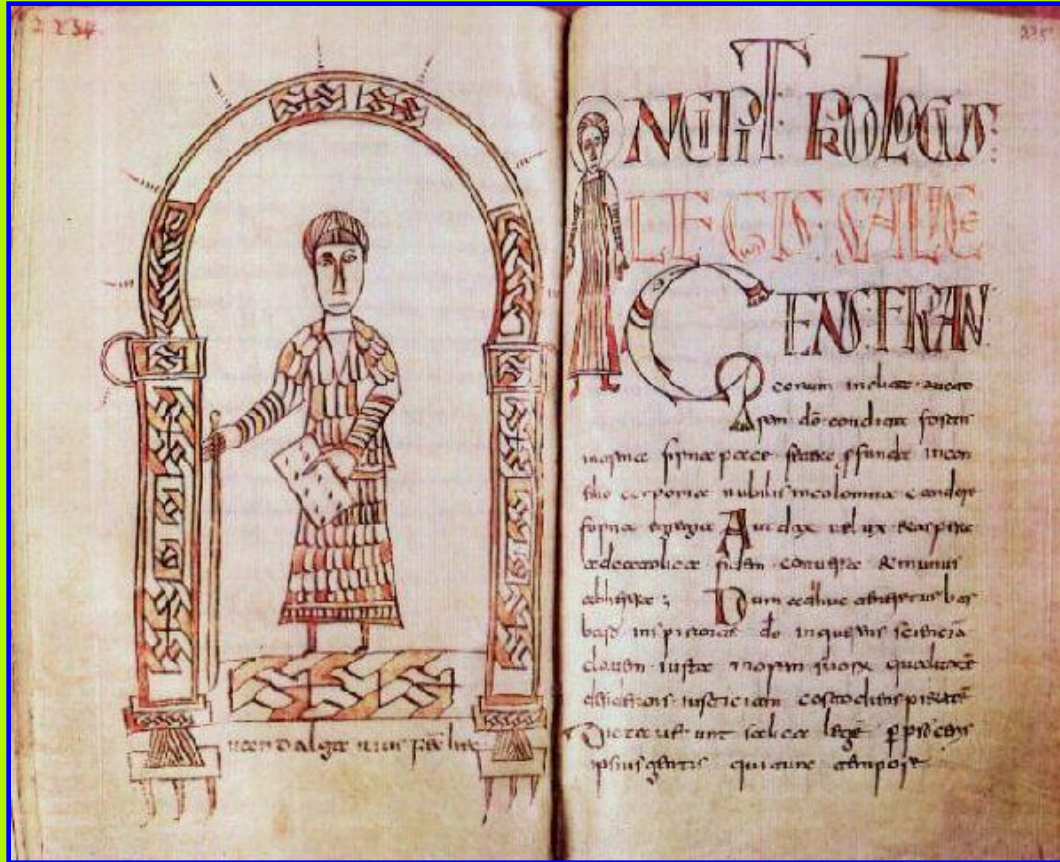 234
235
INCIPIT PROLOGUS
LEGIS SALICE
GENS FRAN
corum inclita aucto
rem dō condita fortis
in arma firma pace
profunda in con
silio corporia nobilis incolomna candore
forma egregia Audax uelux et aspera
fidem conuersa & munus
Dum adhuc teneretur bar
baro inspirante dō inquerens sciencia
clauem iusta morum suorum qualitatē
desiderans iusticiam costodiens pietatē
Dictauerunt salica lege
ipsius gentis qui tunc tempore